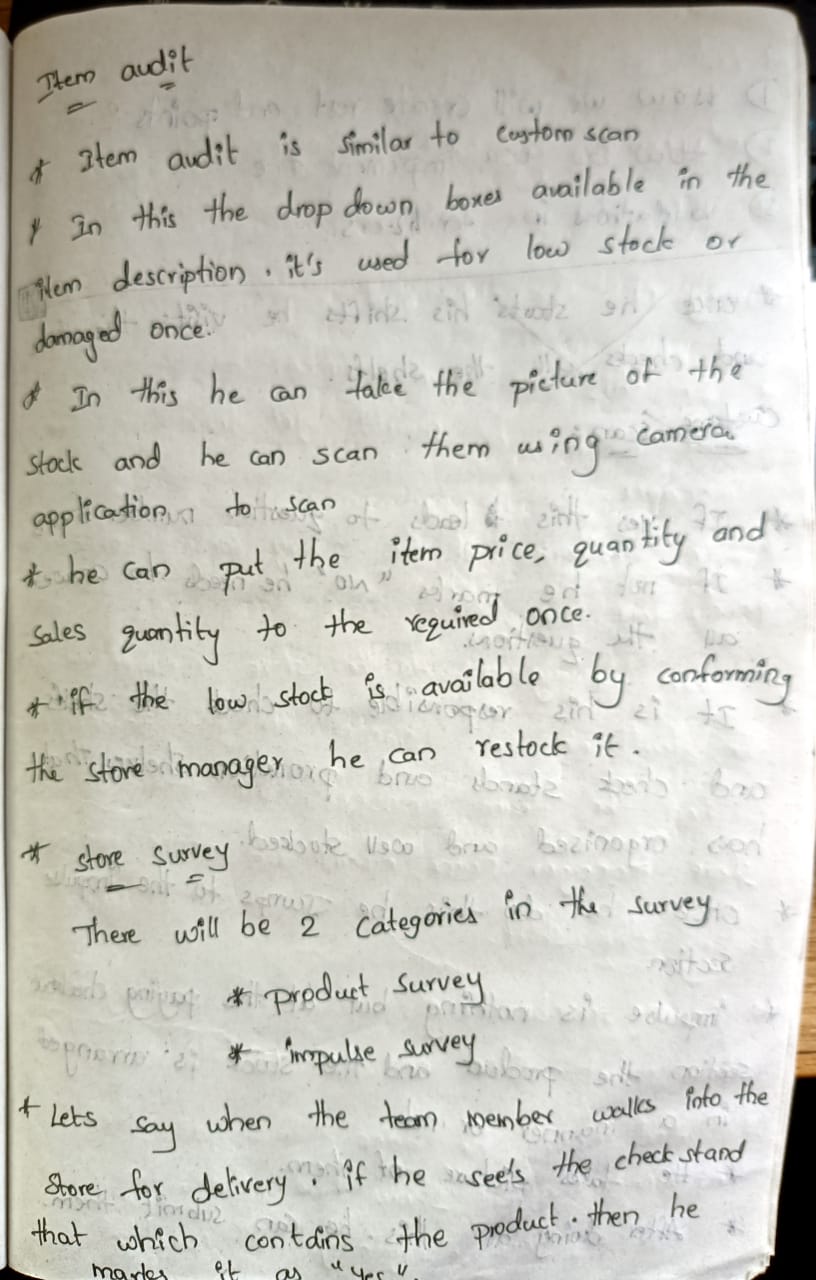 Item audit
* Item audit is similar to custom scan
* In this the drop down boxes available in the
item description. it's used for low stock or
damaged once.
* In this he can take the picture of the
stock and he can scan them using camera
application to scan
* he can put the item price, quantity and
sales quantity to the required once.
* if the low stock is available by conforming
the store manager he can restock it.
* store survey
There will be 2 categories in the survey
* product survey
* impulse survey
* Lets say when the team member walks into the
store for delivery. if he see's the check stand
that which contains the product. then he
marks it as "yes".